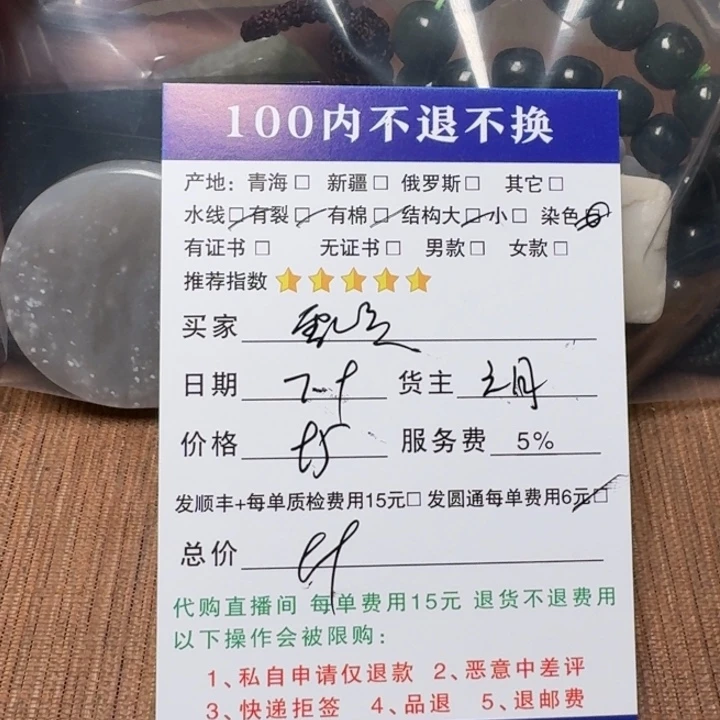 100内不退不换
产地：青海□ 新疆□ 俄罗斯□ 其它□
水线□有裂□ 有棉□结构大□小□ 染色□
有证书□ 无证书□ 男款□ 女款□
推荐指数
买家
日期 货主
价格 服务费 5%
发顺丰+每单质检费用15元□ 发圆通每单费用6元□
总价
代购直播间 每单费用15元 退货不退费用
以下操作会被限购：
1、私自申请仅退款 2、恶意中差评
3、快递拒签 4、品退 5、退邮费